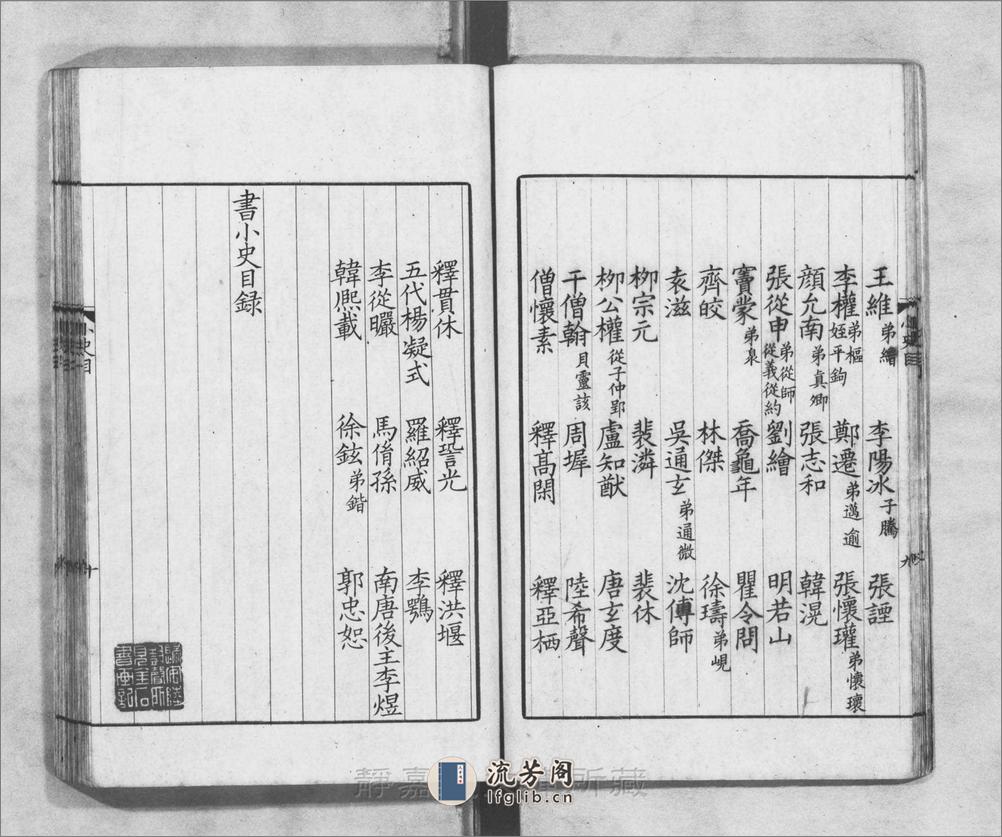 王維 弟繪 李陽冰 子騰 張諲
李權 弟樞 姪平鈞 鄭遷 弟邁 逾 張懷瓘 弟懷瓌
顔允南 弟真卿 張志和 韓滉
張從申 弟從師 從義從約 劉繪 明若山
竇蒙 弟臮 喬龜年 瞿令問
齊皎 林傑 徐璹 弟峴
袁滋 吳通玄 弟通微 沈傳師
栁宗元 裴潾 裴休
栁公權 從子仲郢 盧知猷 唐玄度
于僧翰 貝靈該 周墀 陸希聲
僧懷素 釋髙閑 釋亞栖
釋貫休 釋䛒光 釋洪堰
五代楊凝式 羅紹威 李鶚
李從曮 馬偹孫 南唐後主李煜
韓熈載 徐鉉 弟鍇 郭忠恕
書小史目録
小史目
靜嘉 所藏
流芳阁
lfglib.cn